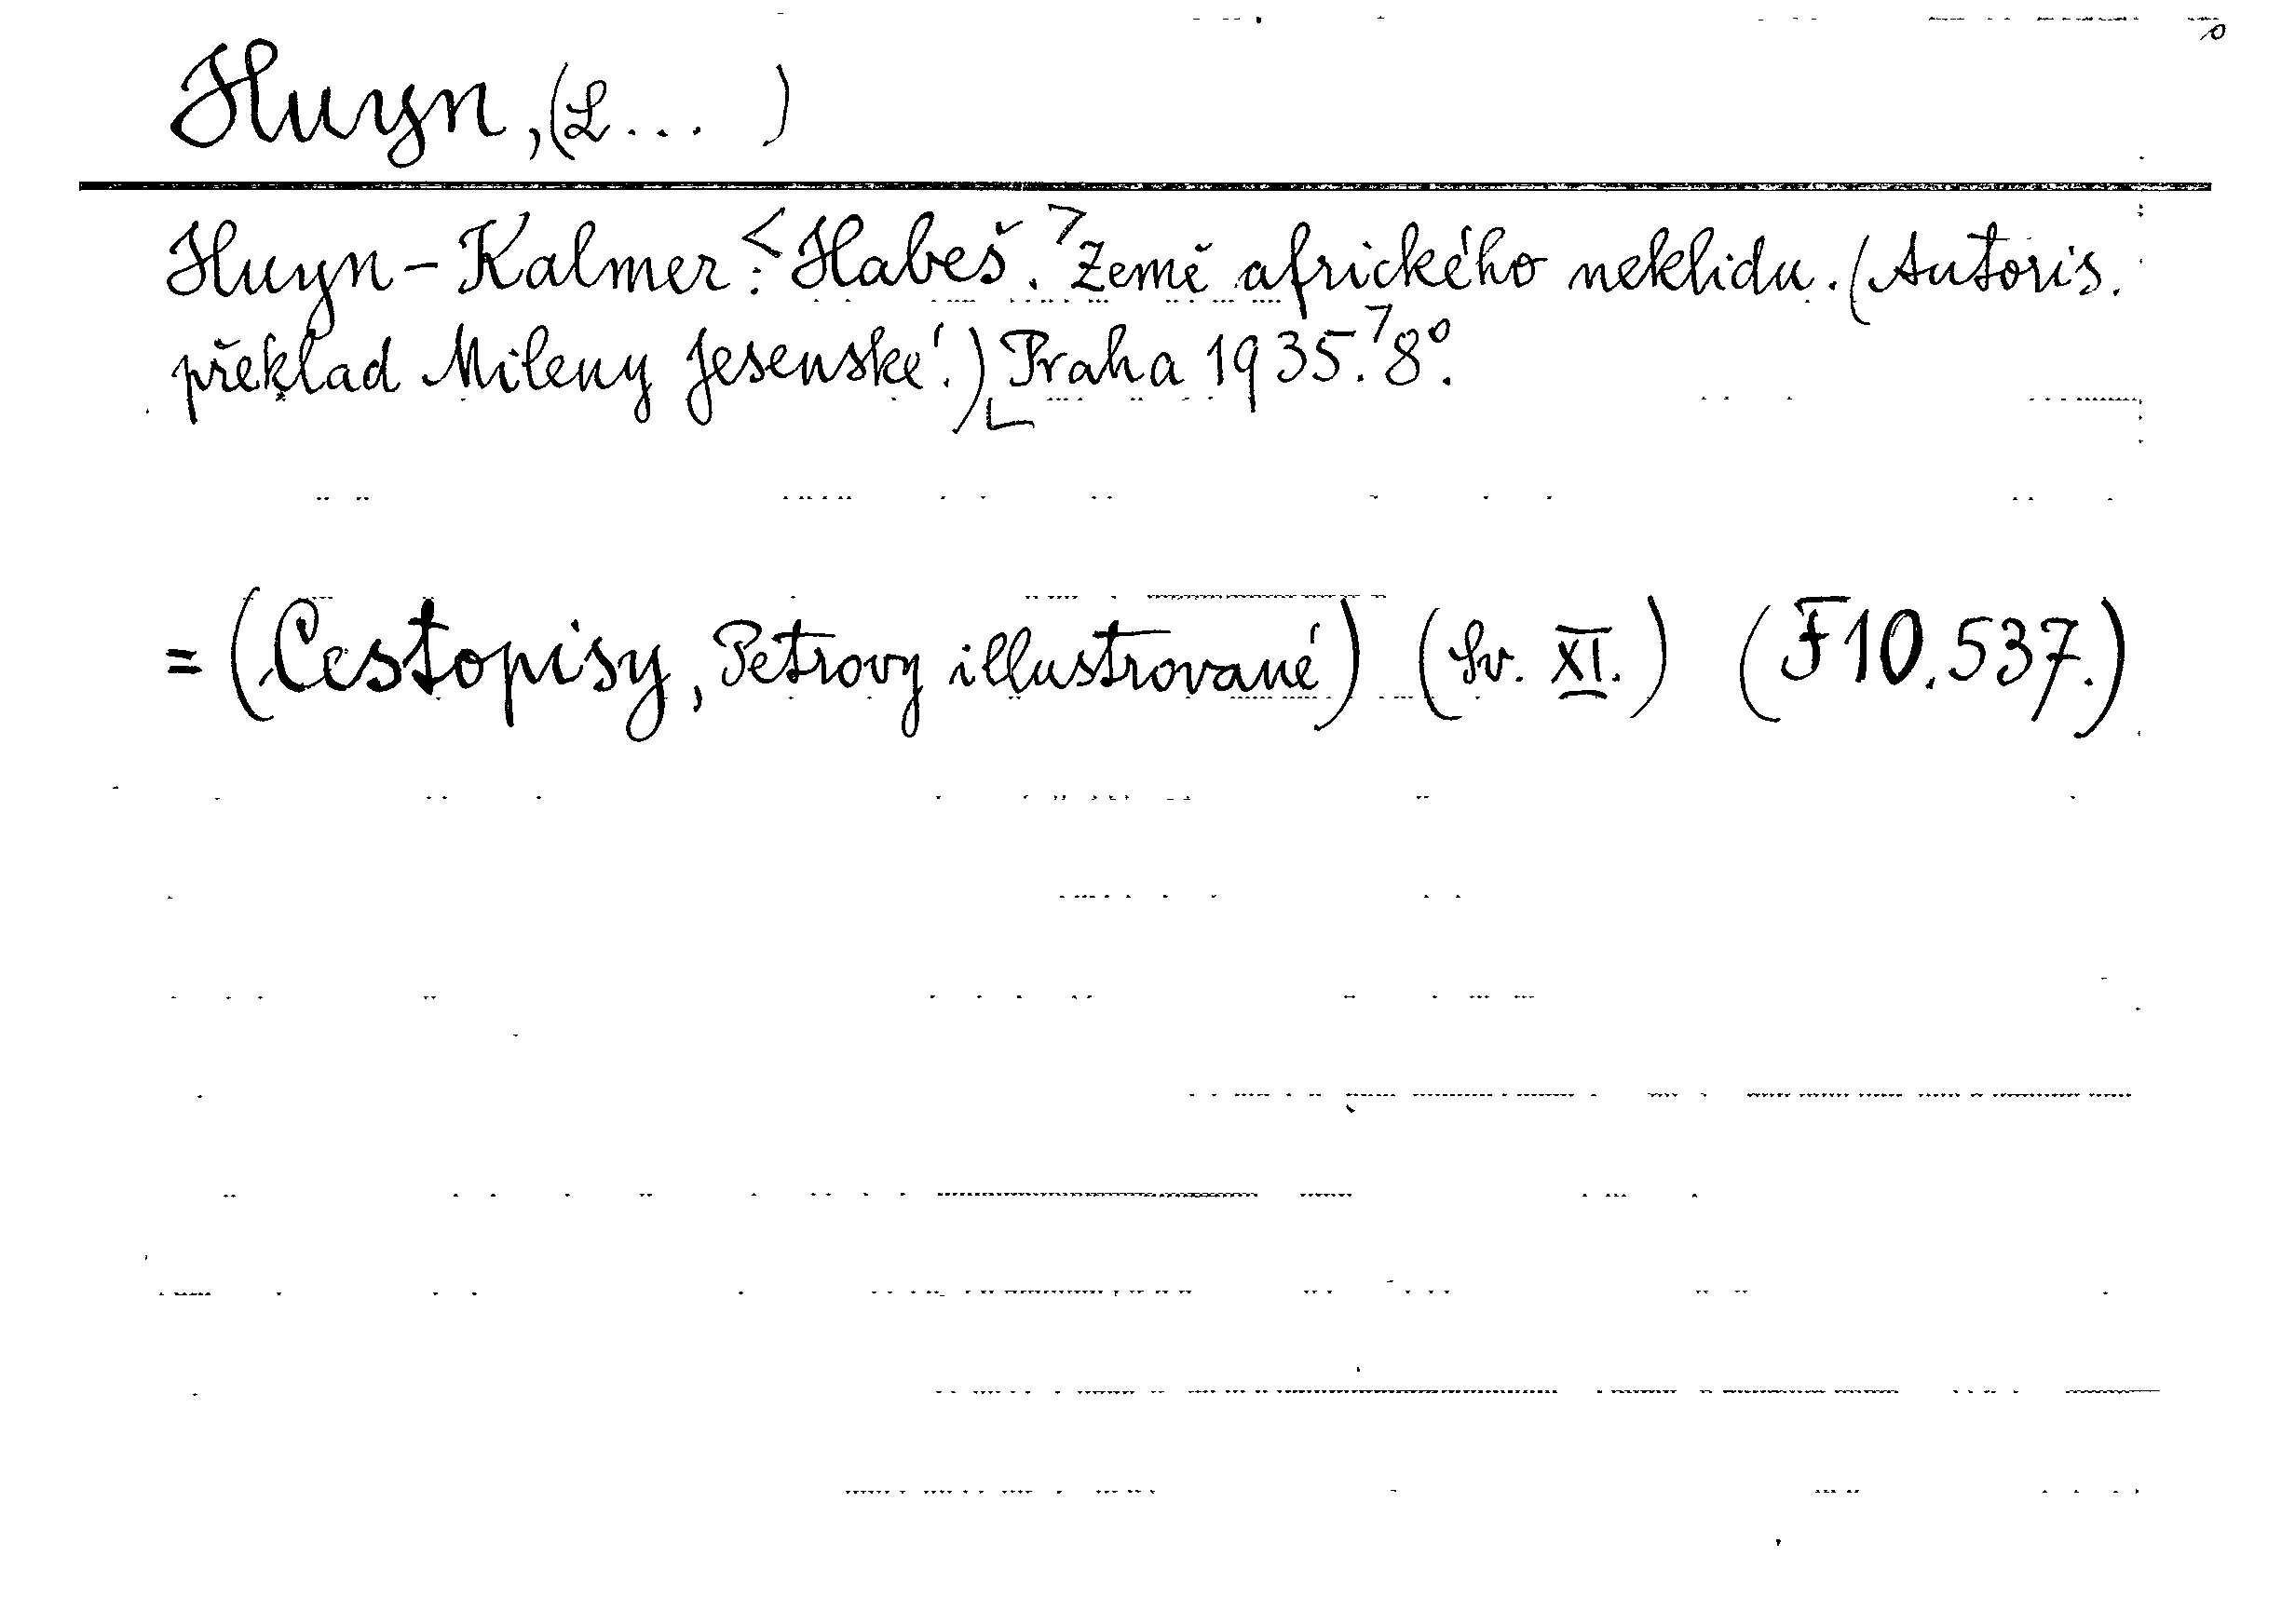 Huyn, (L... )
Huyn-Kalmer: <Habeš.> Země afrického neklidu. (Autoris.
překlad Mileny Jesenské.) Praha 1935. 8°.
= (Cestopisy, Petrovy illustrované) (Sv. XI.) (F10.537.)